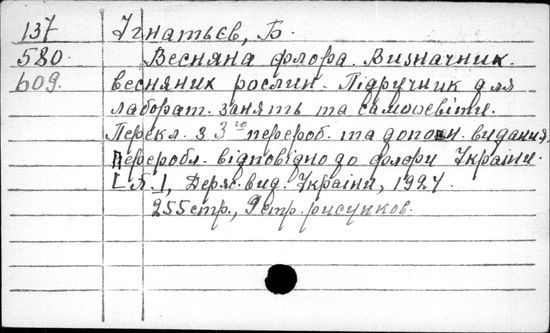 137 Ігнатьєв, Б.
580. Весняна флора. Визначник.
609. весняних рослин. Підручник для
лаборат. занять та самоосвіти.
Перекл. з 3го перероб. та доповн. видання.
Переробл. відповідно до флори України.
[Б.], Держ. вид. України, 1924.
255 стр., 9 стр. рисунков.